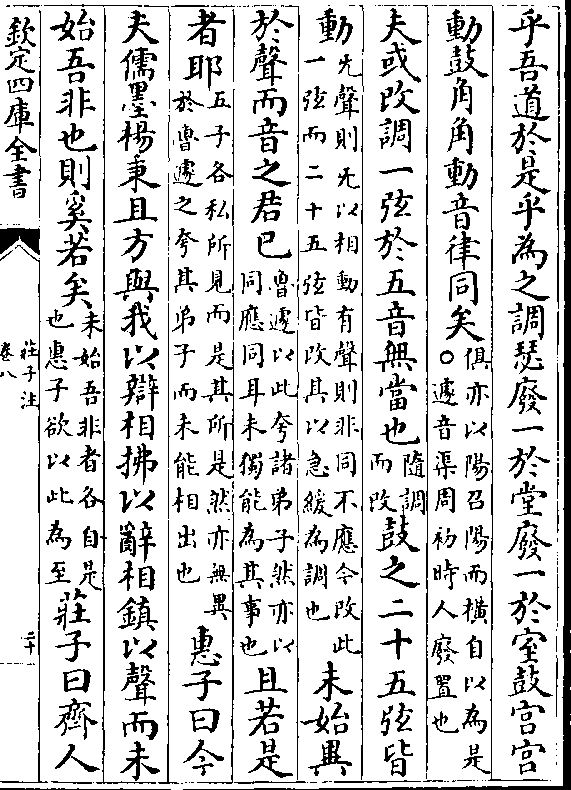 乎吾道於是乎為之調瑟廢一於堂廢一於室鼓宮宮
動鼓角角動音律同矣
俱亦以陽召陽而橫自以為是
○遽音渠周初時人廢置也
夫或改調一弦於五音無當也
隨調
而改
鼓之二十五弦皆
動
无聲則无以相動有聲則非同不應今改此
一弦而二十五弦皆改其以急緩為調也
未始異
於聲而音之君已
魯遽以此夸諸弟子然亦以
同應同耳未獨能為其事也
且若是
者耶
五子各私所見而是其所是然亦無異
於魯遽之夸其弟子而未能相出也
惠子曰今
夫儒墨楊秉且方與我以辯相拂以辭相鎮以聲而未
始吾非也則奚若矣
未始吾非者各自是
也惠子欲以此為至
莊子曰齊人
欽定四庫全書
莊子注
卷八
二十